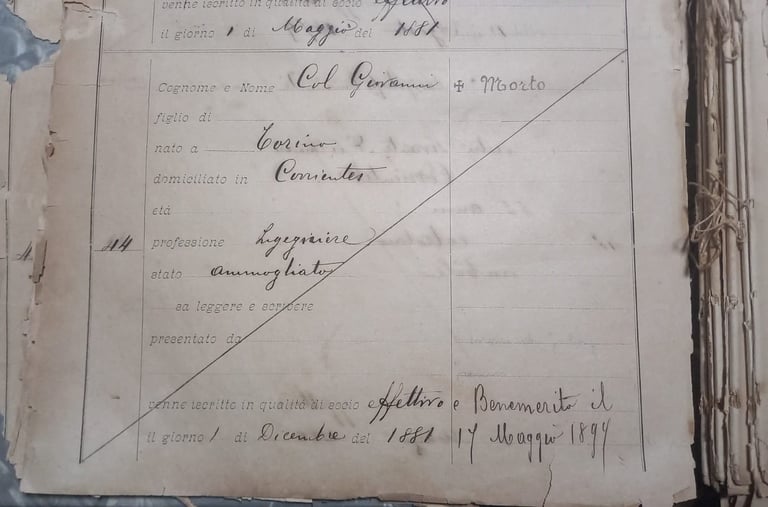 venne iscritto in qualità di socio effettivo
il giorno 1 di Maggio del 1881
Cognome e Nome Col Giovanni ✠ Morto
figlio di
nato a Torino
domiciliato in Corrientes
età
44 professione Ingegniere
stato ammogliato
sa leggere e scrivere
presentato da
venne iscritto in qualità di socio effettivo e Benemerito il
il giorno 1 di Dicembre del 1881 17 Maggio 1897